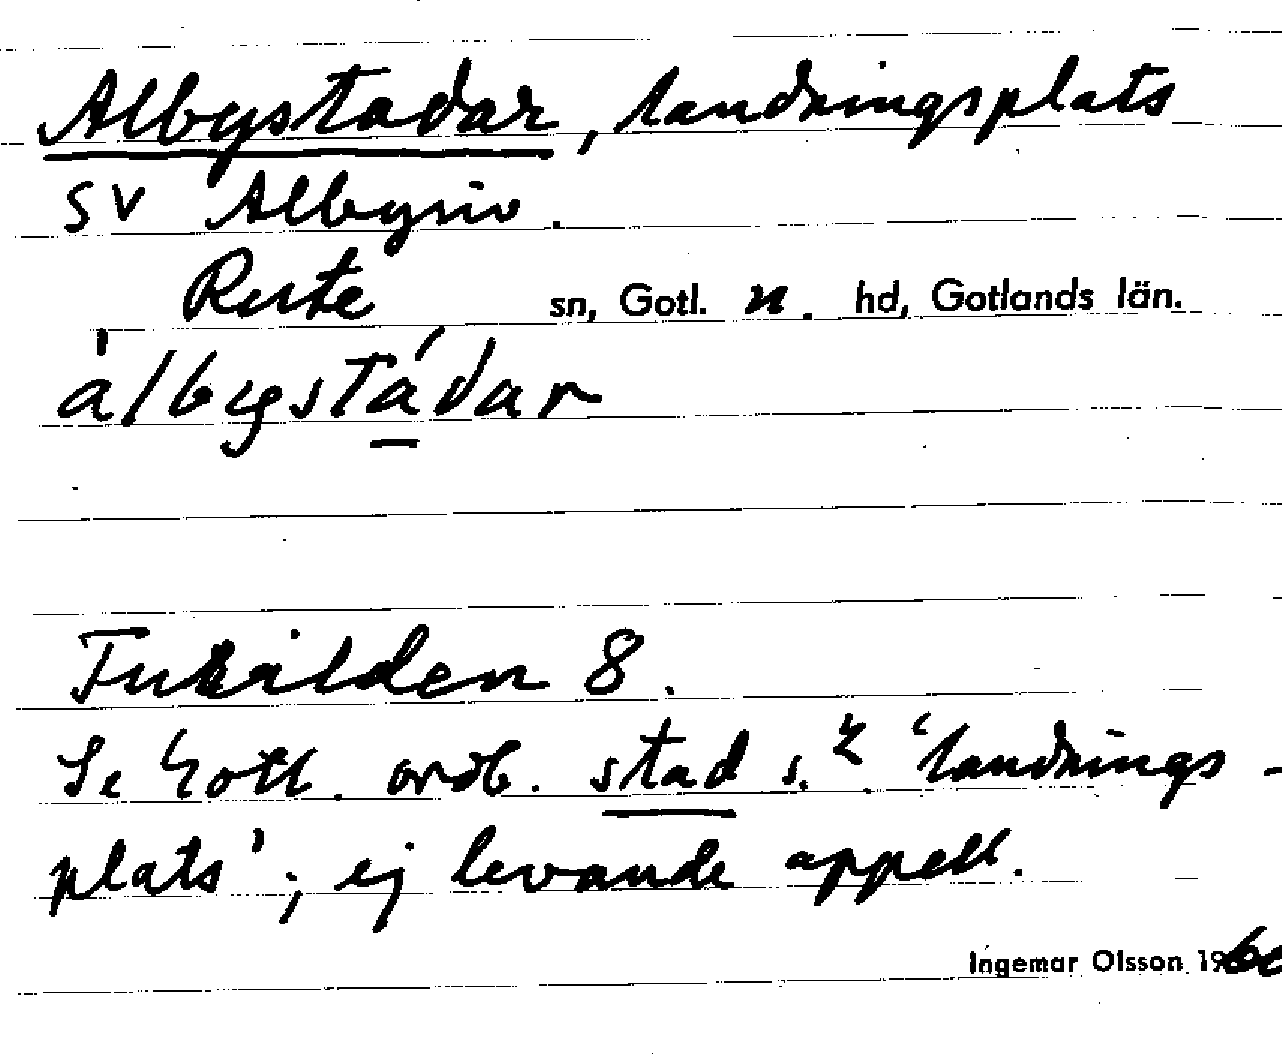 Albystadar, landningsplats
SV Albysiv.
Rute sn, Gotl. n. hd, Gotlands län.
àlbystádar
8.
Se Gotl. ordb. stad s.² 'landnings-
plats'; ej levande appell.
Ingemar Olsson 1960